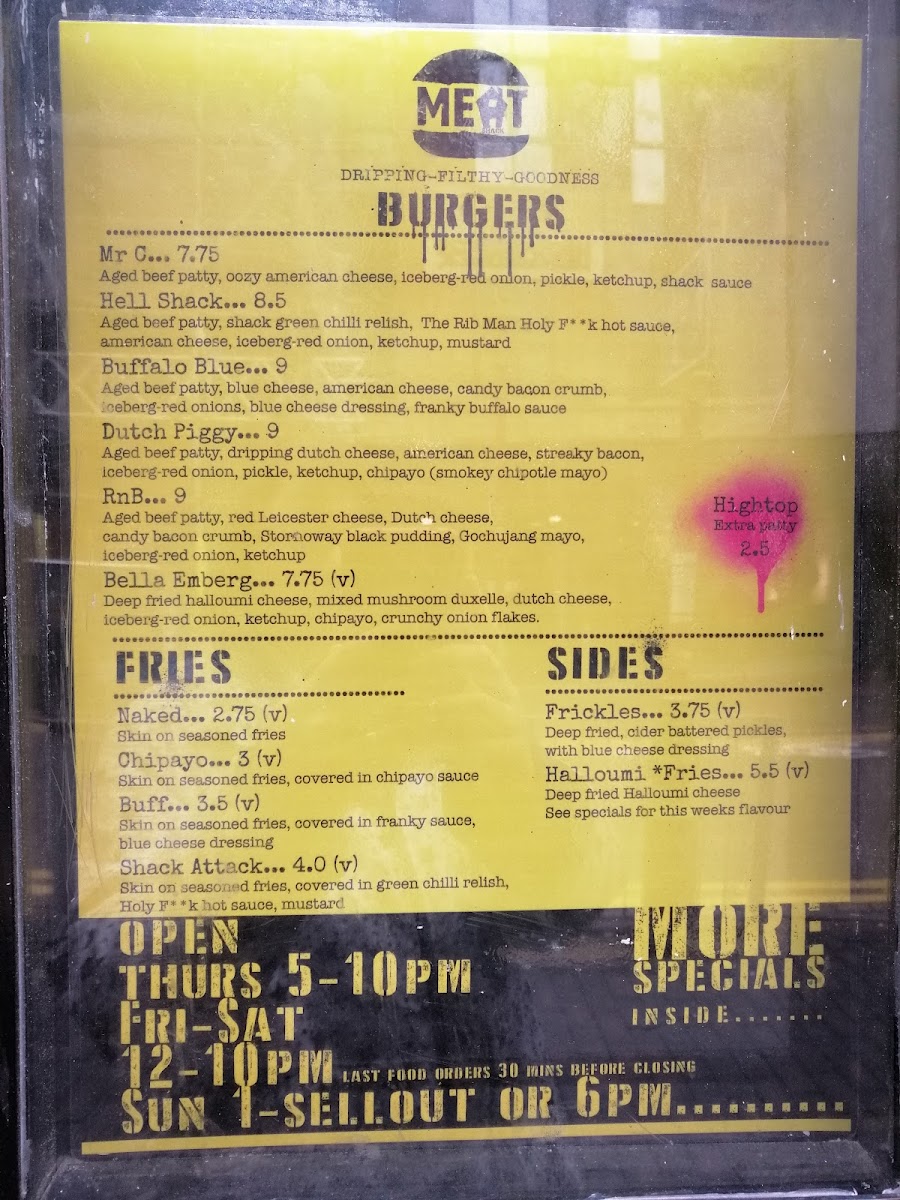 MEAT
SHACK
DRIPPING-FILTHY-GOODNESS
BURGERS
Mr C... 7.75
Aged beef patty, oozy american cheese, iceberg-red onion, pickle, ketchup, shack sauce
Hell Shack... 8.5
Aged beef patty, shack green chilli relish, The Rib Man Holy F**k hot sauce,
american cheese, iceberg-red onion, ketchup, mustard
Buffalo Blue... 9
Aged beef patty, blue cheese, american cheese, candy bacon crumb,
iceberg-red onions, blue cheese dressing, franky buffalo sauce
Dutch Piggy... 9
Aged beef patty, dripping dutch cheese, american cheese, streaky bacon,
iceberg-red onion, pickle, ketchup, chipayo (smokey chipotle mayo)
RnB... 9
Aged beef patty, red Leicester cheese, Dutch cheese,
candy bacon crumb, Stornoway black pudding, Gochujang mayo,
iceberg-red onion, ketchup
Hightop
Extra patty
2.5
Bella Emberg... 7.75 (v)
Deep fried halloumi cheese, mixed mushroom duxelle, dutch cheese,
iceberg-red onion, ketchup, chipayo, crunchy onion flakes.
FRIES
Naked... 2.75 (v)
Skin on seasoned fries
Chipayo... 3 (v)
Skin on seasoned fries, covered in chipayo sauce
Buff... 3.5 (v)
Skin on seasoned fries, covered in franky sauce,
blue cheese dressing
Shack Attack... 4.0 (v)
Skin on seasoned fries, covered in green chilli relish,
Holy F**k hot sauce, mustard
SIDES
Frickles... 3.75 (v)
Deep fried, cider battered pickles,
with blue cheese dressing
Halloumi *Fries... 5.5 (v)
Deep fried Halloumi cheese
See specials for this weeks flavour
OPEN
THURS 5-10PM
FRI-SAT
12-10PM LAST FOOD ORDERS 30 MINS BEFORE CLOSING
SUN 1-SELLOUT OR 6PM..........
MORE
SPECIALS
INSIDE.......